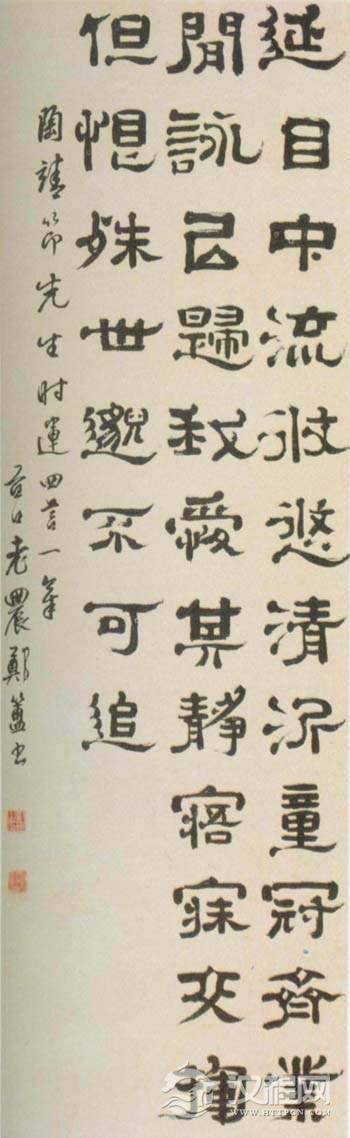 延目中流攸悠清沂童冠齊業
閒詠以歸我愛其靜寤寐交揮
但恨殊世邈不可追
陶靖節先生时運四言一章
谷口老農鄭簠书
汉程网
WWW.HTTPCN.COM